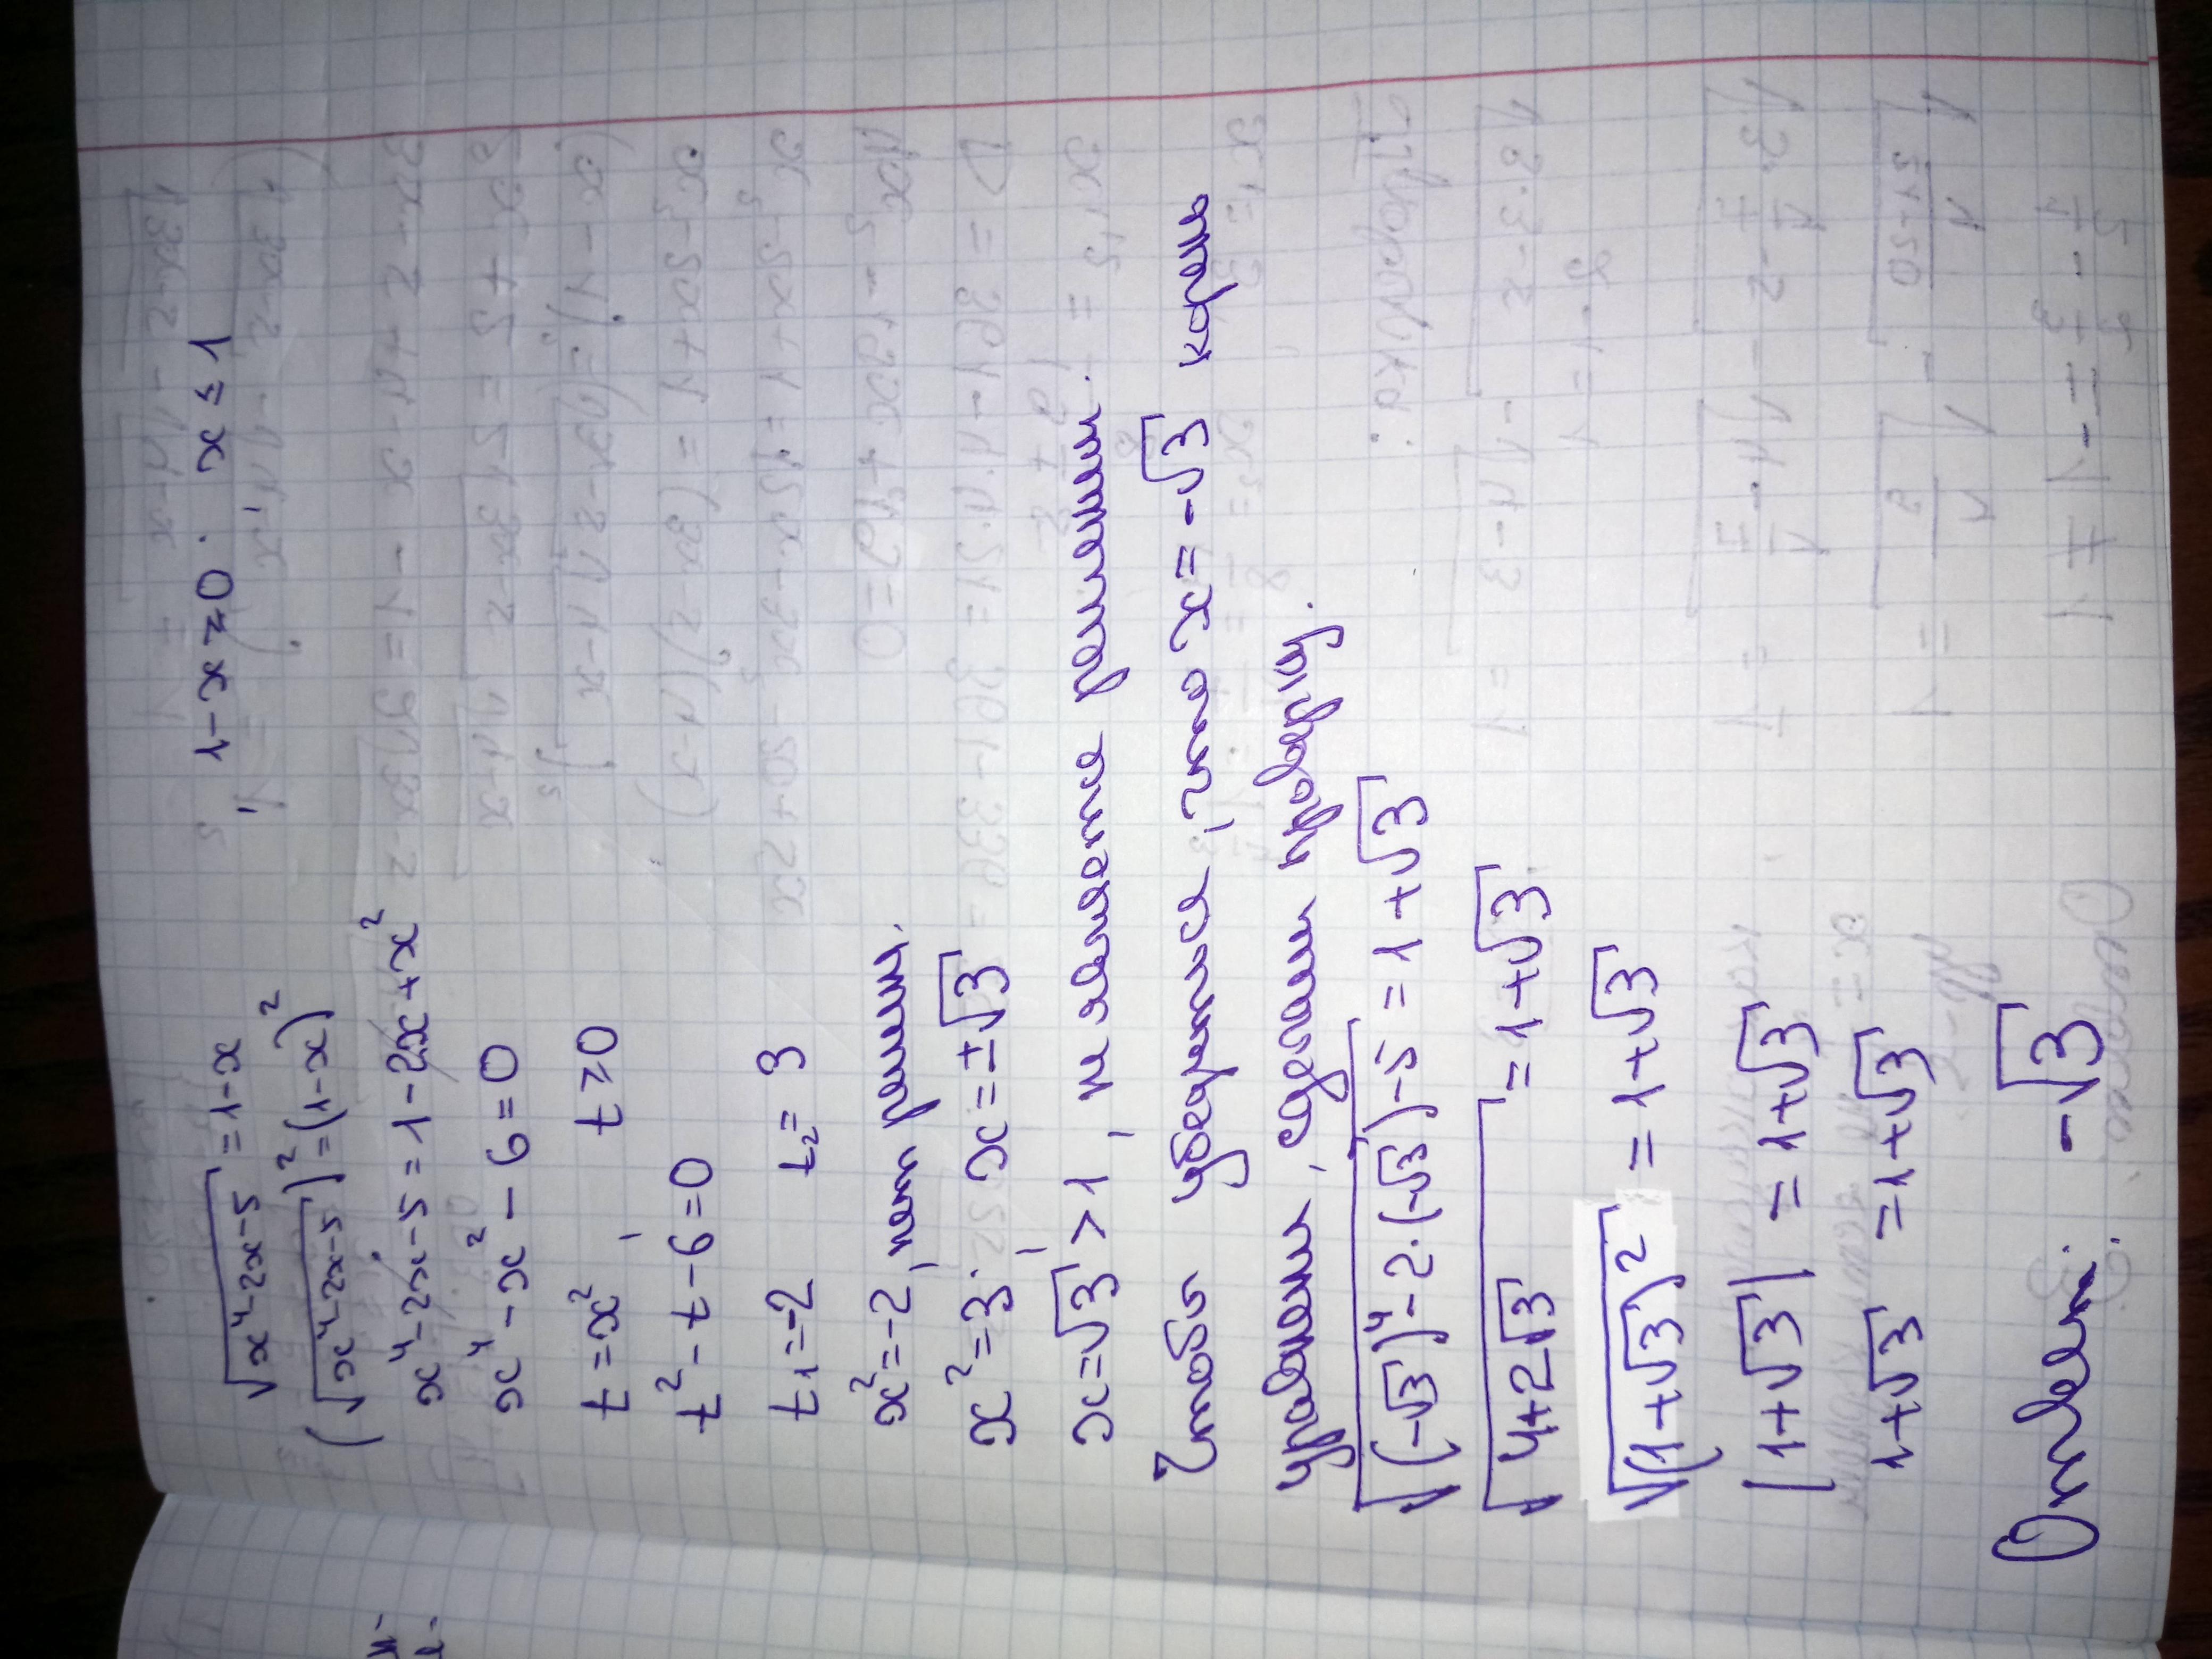 √(x⁴-2x-5) = 1-x , 1-x ≥ 0 . x ≤ 1
(√(x⁴-2x-5))² = (1-x)²
x⁴-2x-5 = 1-2x+x²
x⁴-x²-6=0
t = x² , t ≥ 0
t²-t-6=0
t₁=-2 t₂= 3
x²=-2, нет решит.
x²=3 . x=±√3
x=√3 > 1, не является решением.
Чтобы убедиться, что x=-√3 корень
уравнения, сделаем проверку.
√((-√3)⁴-2·(-√3)-5) = 1+√3
√(4+2√3) = 1+√3
√((1+√3)²) = 1+√3
|1+√3| = 1+√3
1+√3 = 1+√3
Ответ: -√3